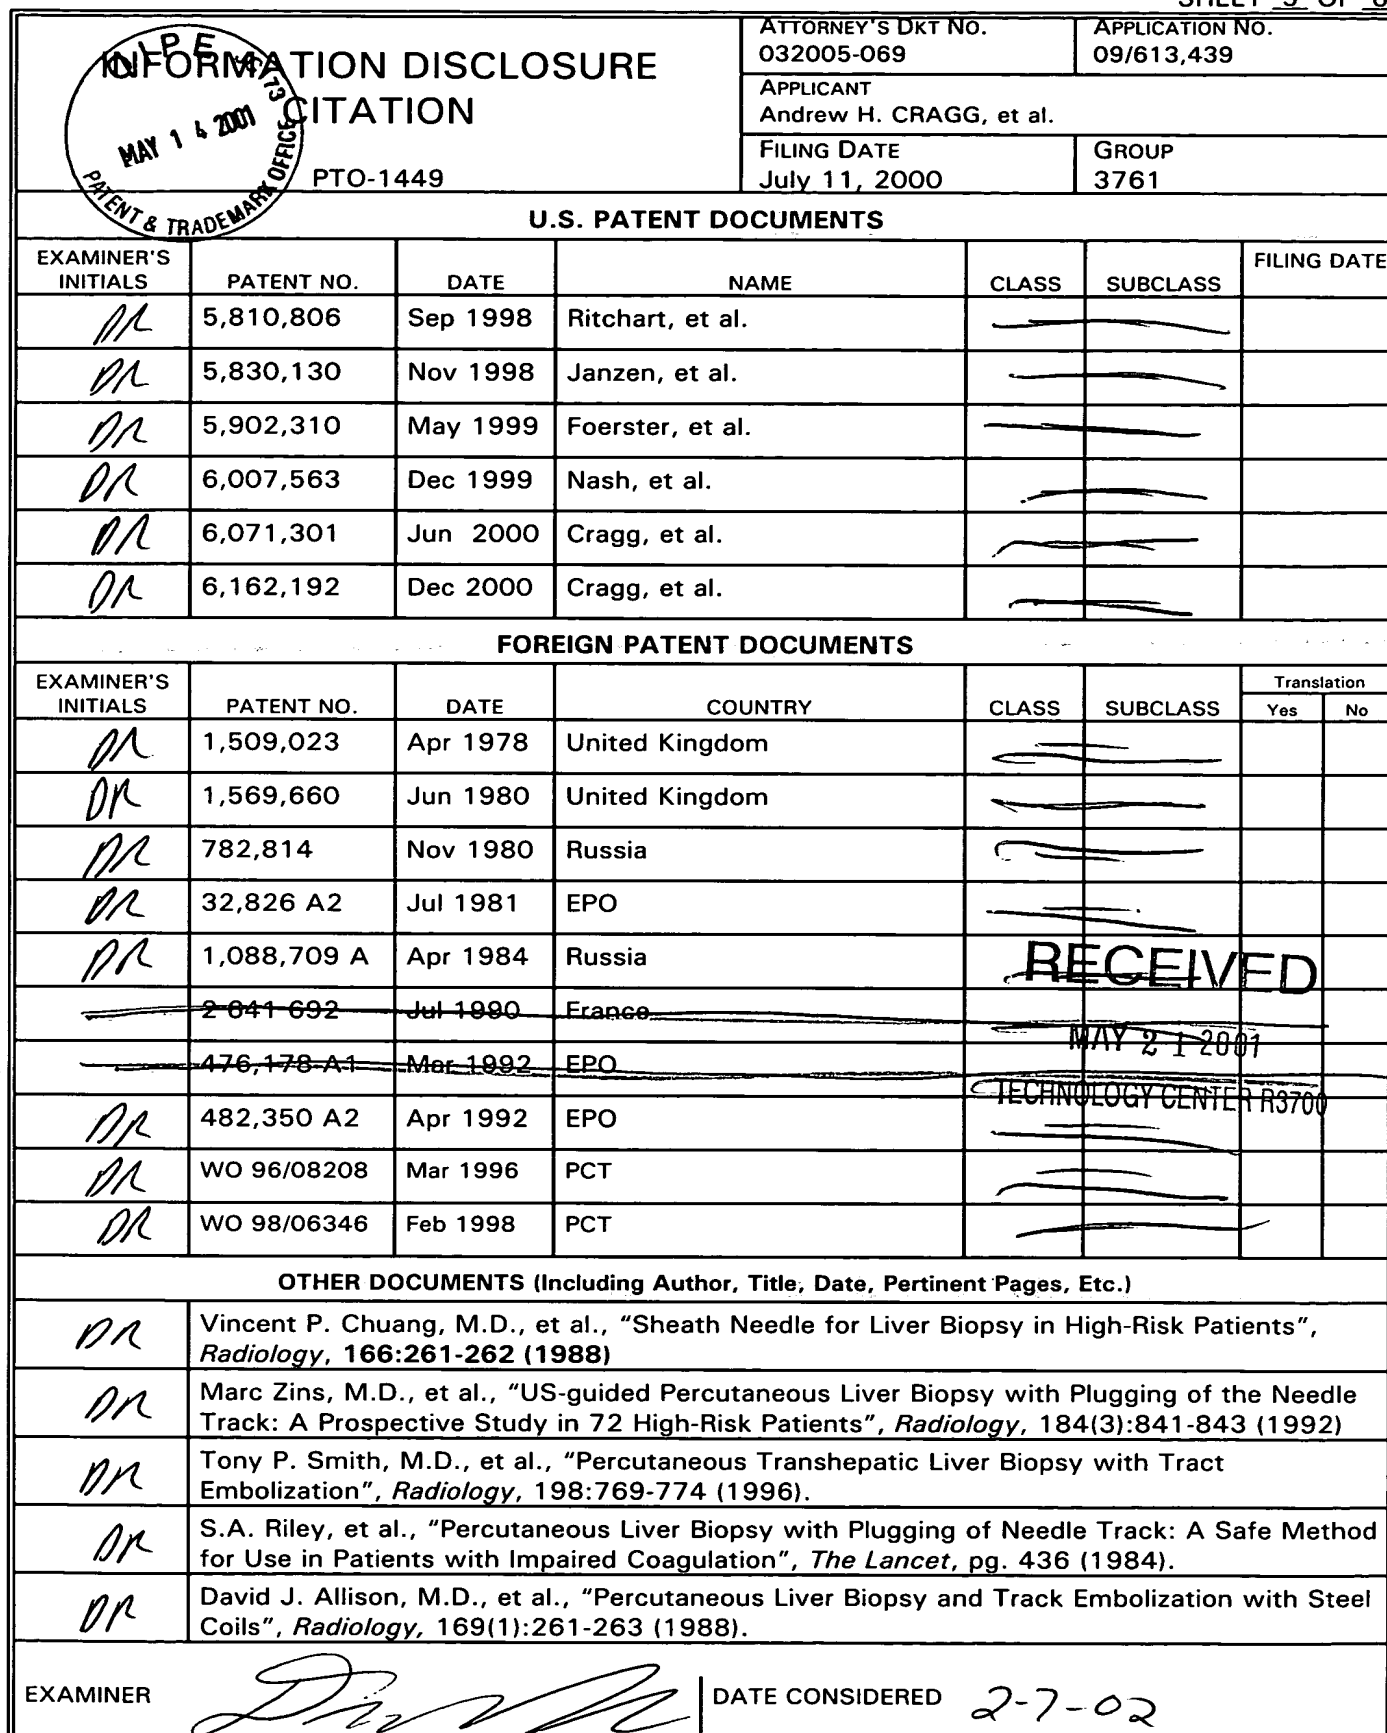 SHEET 5 OF
INFORMATION DISCLOSURE
CITATION
PTO-1449
OIPE
MAY 14 2001
PATENT & TRADEMARK OFFICE
ATTORNEY'S DKT NO.
032005-069
APPLICATION NO.
09/613,439
APPLICANT
Andrew H. CRAGG, et al.
FILING DATE
July 11, 2000
GROUP
3761
U.S. PATENT DOCUMENTS
EXAMINER'S INITIALS PATENT NO. DATE NAME CLASS SUBCLASS FILING DATE
DR 5,810,806 Sep 1998 Ritchart, et al.
DR 5,830,130 Nov 1998 Janzen, et al.
DR 5,902,310 May 1999 Foerster, et al.
DR 6,007,563 Dec 1999 Nash, et al.
DR 6,071,301 Jun 2000 Cragg, et al.
DR 6,162,192 Dec 2000 Cragg, et al.
FOREIGN PATENT DOCUMENTS
EXAMINER'S INITIALS PATENT NO. DATE COUNTRY CLASS SUBCLASS Translation Yes No
DR 1,509,023 Apr 1978 United Kingdom
DR 1,569,660 Jun 1980 United Kingdom
DR 782,814 Nov 1980 Russia
DR 32,826 A2 Jul 1981 EPO
DR 1,088,709 A Apr 1984 Russia
RECEIVED
2 641 692 Jul 1990 France
MAY 21 2001
476,178 A1 Mar 1992 EPO
TECHNOLOGY CENTER R3700
DR 482,350 A2 Apr 1992 EPO
DR WO 96/08208 Mar 1996 PCT
DR WO 98/06346 Feb 1998 PCT
OTHER DOCUMENTS (Including Author, Title, Date, Pertinent Pages, Etc.)
DR Vincent P. Chuang, M.D., et al., "Sheath Needle for Liver Biopsy in High-Risk Patients",
Radiology, 166:261-262 (1988)
DR Marc Zins, M.D., et al., "US-guided Percutaneous Liver Biopsy with Plugging of the Needle
Track: A Prospective Study in 72 High-Risk Patients", Radiology, 184(3):841-843 (1992)
DR Tony P. Smith, M.D., et al., "Percutaneous Transhepatic Liver Biopsy with Tract
Embolization", Radiology, 198:769-774 (1996).
DR S.A. Riley, et al., "Percutaneous Liver Biopsy with Plugging of Needle Track: A Safe Method
for Use in Patients with Impaired Coagulation", The Lancet, pg. 436 (1984).
DR David J. Allison, M.D., et al., "Percutaneous Liver Biopsy and Track Embolization with Steel
Coils", Radiology, 169(1):261-263 (1988).
EXAMINER DATE CONSIDERED 2-7-02